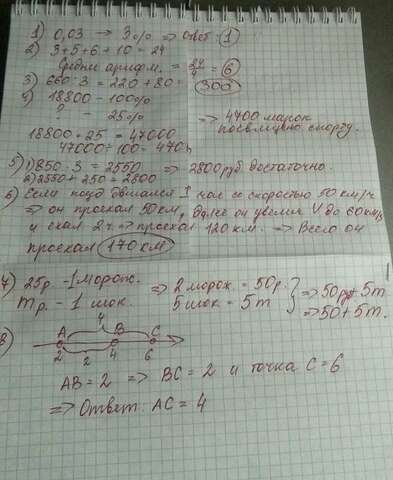 1) 0,03 → 3% ⇒ ответ: 1
2) 3+5+6+10 = 24
Среднее арифм. = 24/4 = 6
3) 660 : 3 = 220 + 80 = 300
4) 18800 - 100%
? - 25%
⇒ 4700 марок посвящено спорту.
18800 · 25 = 47000
47000 : 100 = 470
5) 1) 850 · 3 = 2550 ⇒ 2800 руб достаточно.
2) 2550 + 250 = 2800
6) Если поезд двигался 1 час со скоростью 50 км/ч
⇒ он проехал 50 км, далее он увелич V до 60 км/ч
и ехал 2 ч. ⇒ проехал 120 км. ⇒ Всего он
проехал 170 км
7) 25р. - 1 морож. ⇒ 2 морож. = 50р. ⇒ 50р + 5m
mр. - 1 шок. 5 шок = 5m ⇒ 50 + 5m.
8)
4
A B C
2 4 6
2
AB = 2 ⇒ BC = 2 и точка C = 6
⇒ Ответ: AC = 4